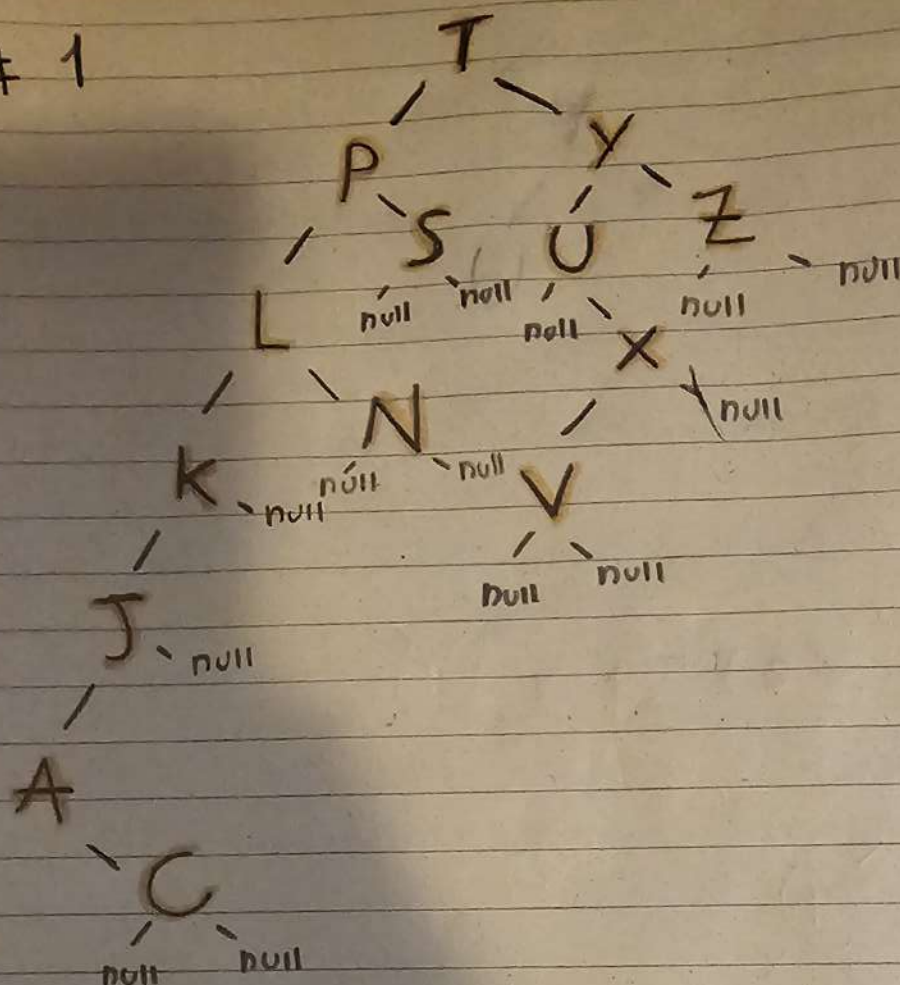 # 1
T
P Y
S U Z
null null null null null
L X
null
K N
null null null
null
V
null null
J
null
A
C
null null